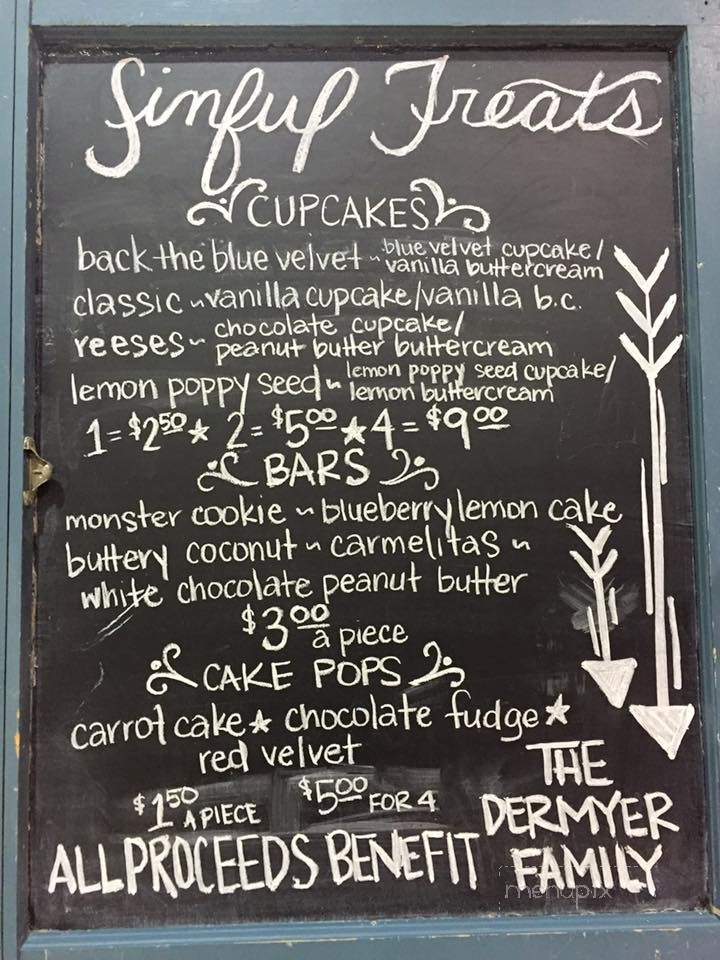 Sinful Treats
CUPCAKES
back the blue velvet ~ blue velvet cupcake/
vanilla buttercream
classic ~ vanilla cupcake/vanilla b.c.
reeses ~ chocolate cupcake/
peanut butter buttercream
lemon poppy seed ~ lemon poppy seed cupcake/
lemon buttercream
1=$2.50 ★ 2=$5.00 ★ 4=$9.00
BARS
monster cookie ~ blueberry lemon cake
buttery coconut ~ carmelitas ~
white chocolate peanut butter
$3.00 a piece
CAKE POPS
carrot cake ★ chocolate fudge ★
red velvet
$1.50 A PIECE $5.00 FOR 4
ALL PROCEEDS BENEFIT THE
DERMYER
FAMILY
menupix